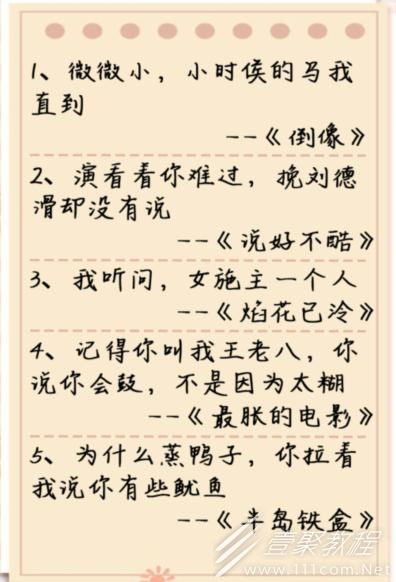 1、微微小，小时侯的马我
直到
--《倒像》
2、演看着你难过，挽刘德
滑却没有说
--《说好不酷》
3、我听问，女施主一个人
--《焰花已冷》
4、记得你叫我王老八，你
说你会鼓，不是因为太糊
--《最胀的电影》
5、为什么蒸鸭子，你拉着
我说你有些鱿鱼
--《半岛铁盒》
壹聚教程
www.111com.Net